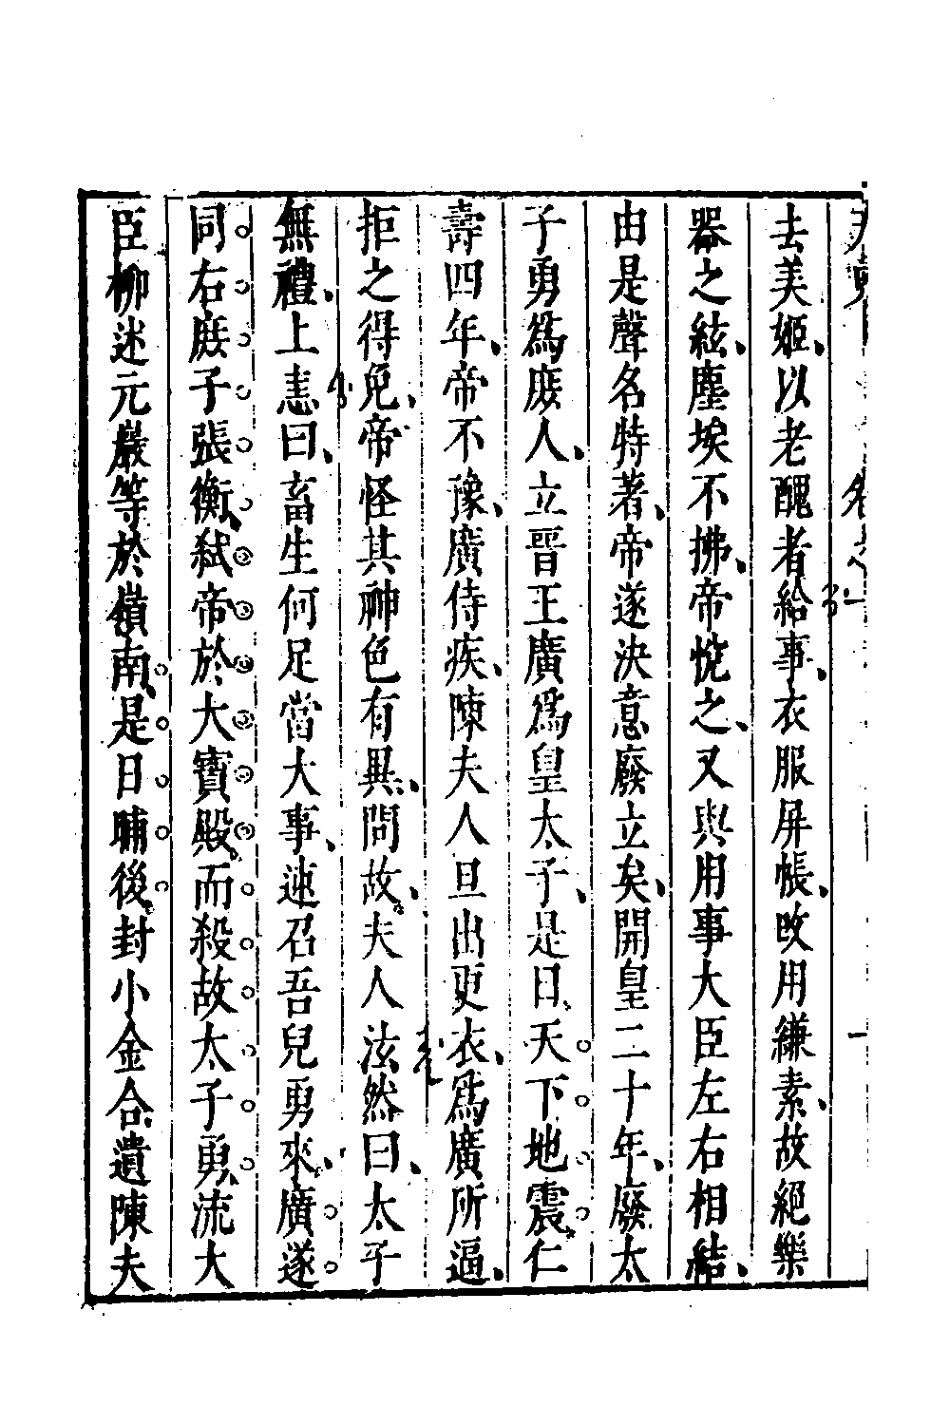 去美姬以老醜者給事衣服屏帳改用縑素故絕樂
器之絃塵埃不拂帝悅之又與用事大臣左右相結
由是聲名特著帝遂決意廢立矣開皇二十年廢太
子勇爲庶人立晉王廣爲皇太子是日天下地震仁
壽四年帝不豫廣侍疾陳夫人旦出更衣爲廣所逼
拒之得免帝怪其神色有異問故夫人泫然曰太子
無禮上恚曰畜生何足當大事速召吾兒勇來廣遂
同右庶子張衡弑帝於大寶殿而殺故太子勇流大
臣柳述元巖等於嶺南是日晡後封小金合遺陳夫